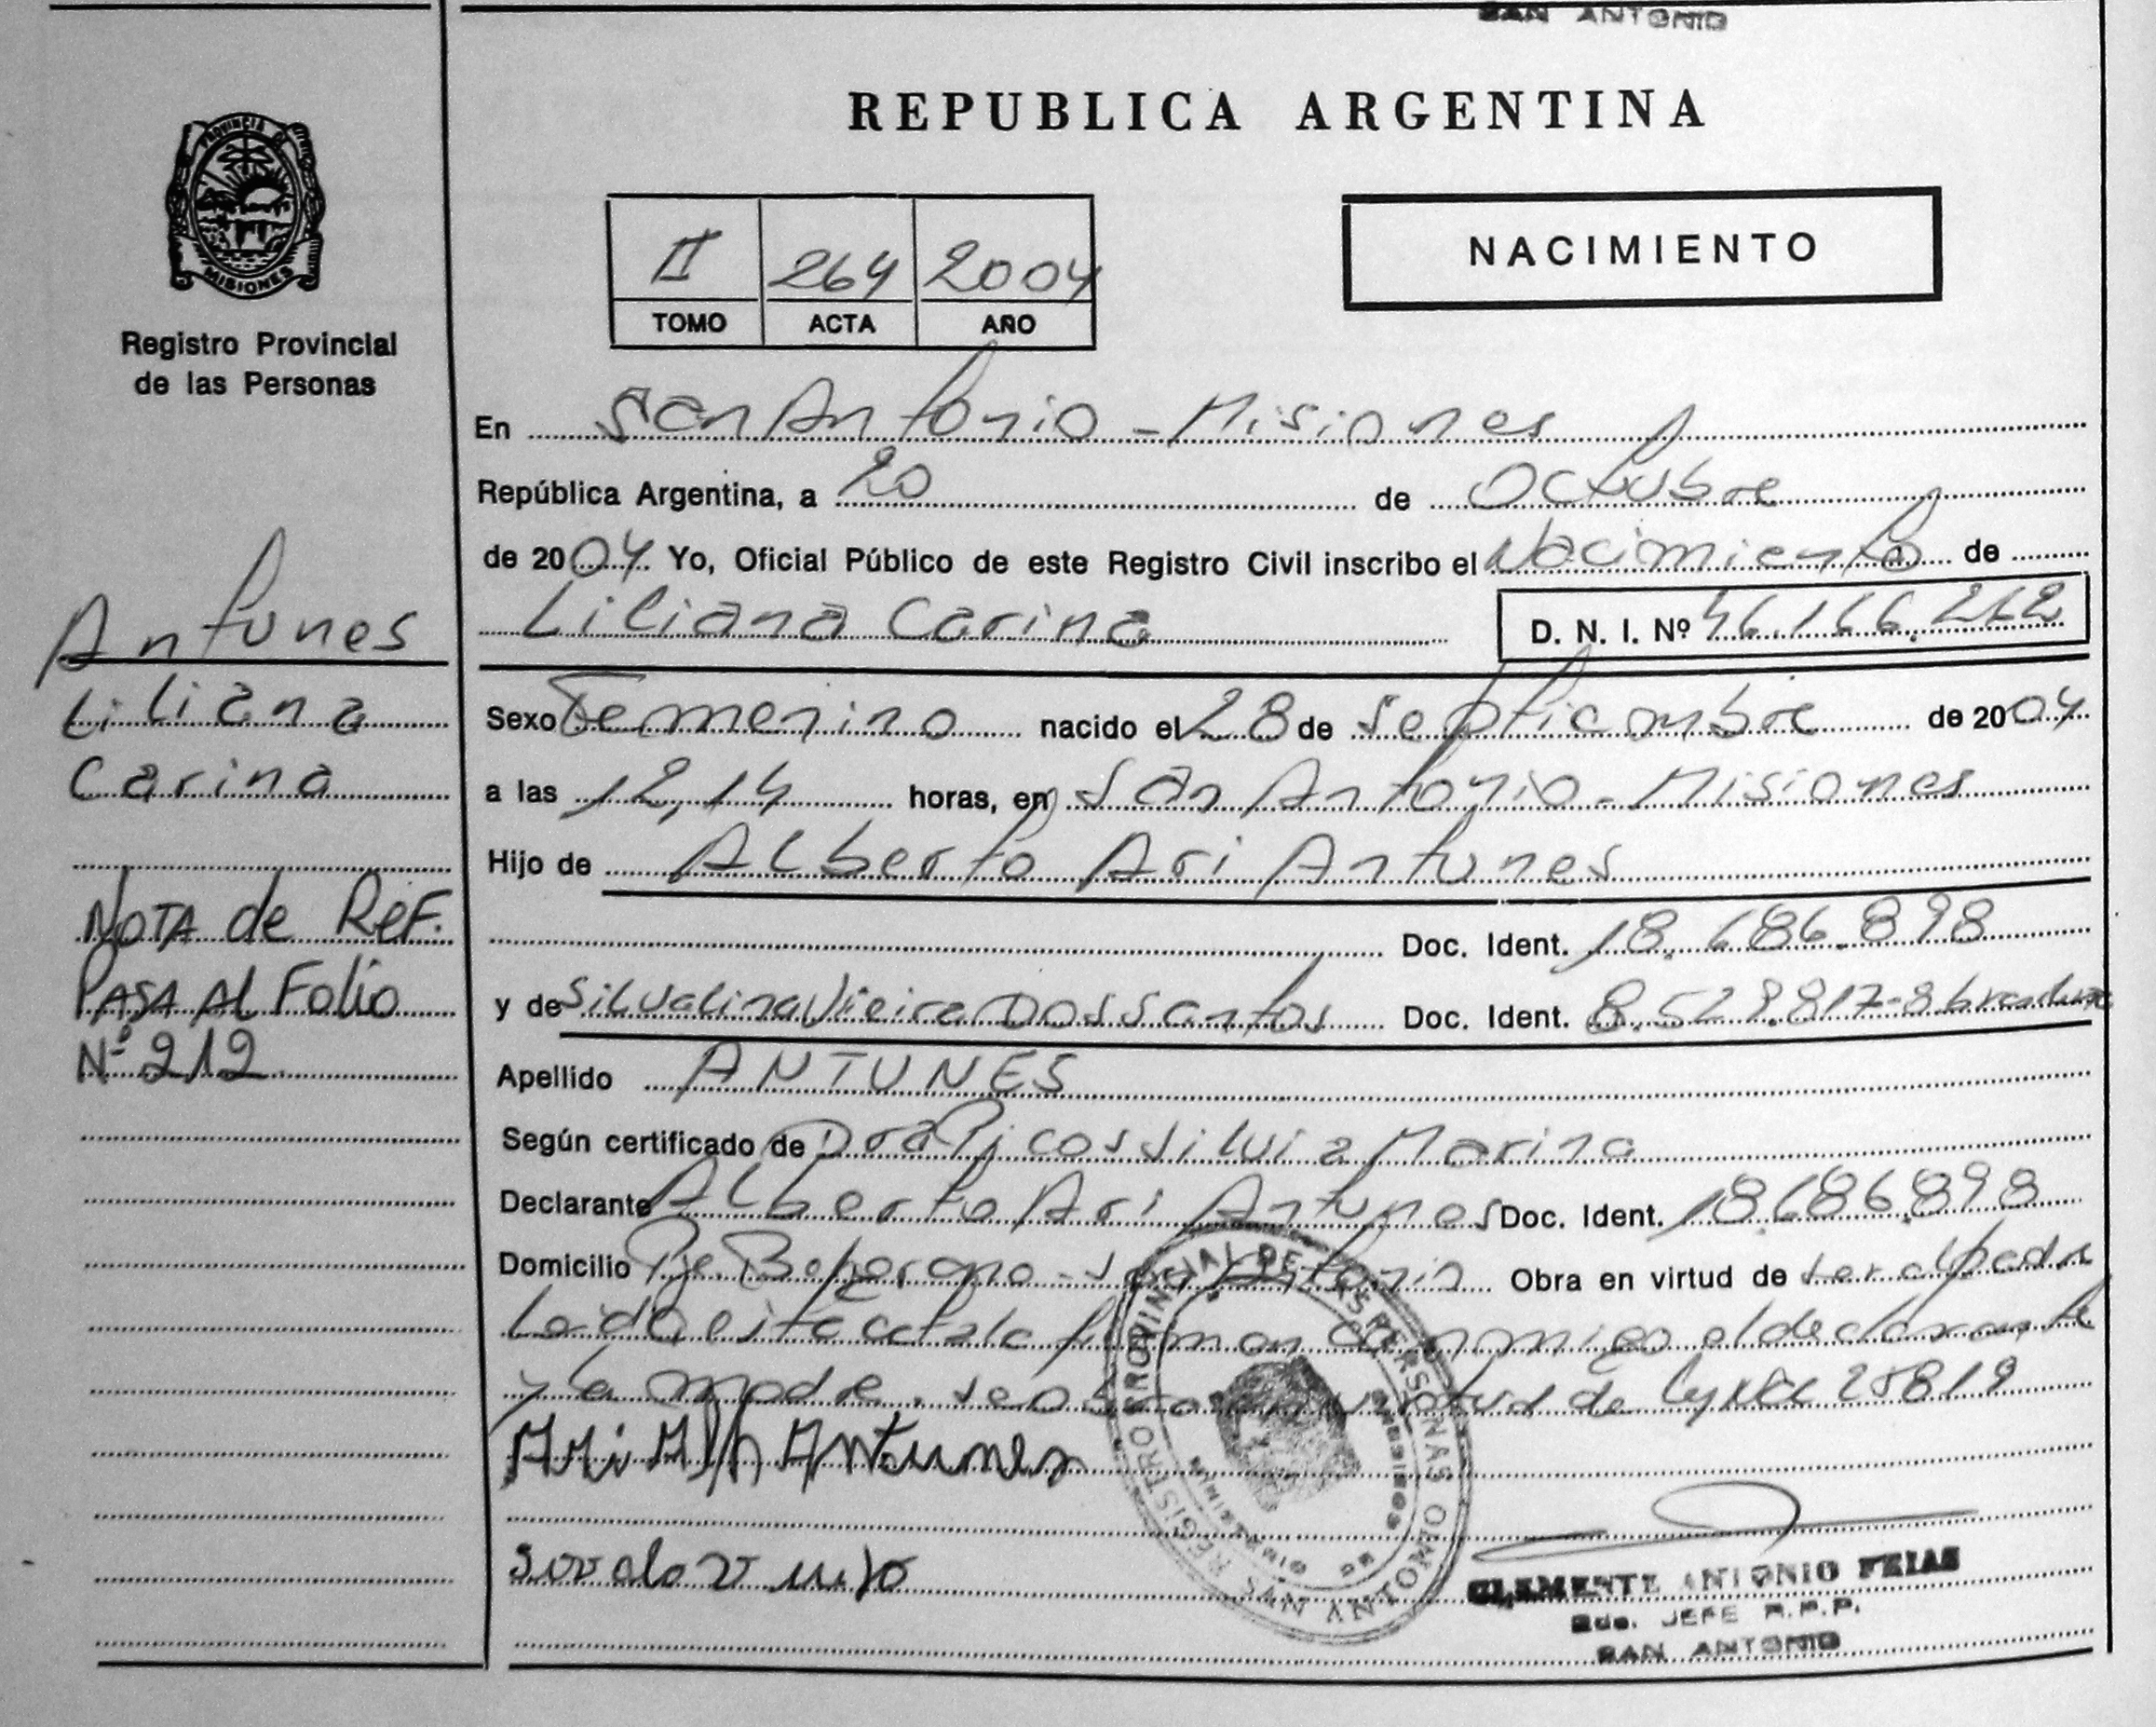 SAN ANTONIO
PROVINCIA DE
MISIONES
Registro Provincial
de las Personas
Antunes
Liliana
Carina
NOTA de ReF.
PASA Al Folio
Nº 212
REPUBLICA ARGENTINA
II 264 2004
TOMO ACTA AÑO
NACIMIENTO
En San Antonio - Misiones
República Argentina, a 20 de Octubre
de 2004 Yo, Oficial Público de este Registro Civil inscribo el Nacimiento de
Liliana Carina D. N. I. Nº 46.166.262
Sexo Femenino nacido el 28 de Septiembre de 2004
a las 12,14 horas, en San Antonio - Misiones
Hijo de Alberto Ari Antunes
Doc. Ident. 18.686.898
y de Silvalina Vieira Dos Santos Doc. Ident. 8.529.817-8
Apellido ANTUNES
Según certificado de Dra Picos Silvia Marina
Declarante Alberto Ari Antunes Doc. Ident. 18.686.898
Domicilio Pje. San Antonio Obra en virtud de ser el padre
Leida esta acta la firman conmigo el declarante
y la madre. de Ley Nº 25819
Ari Antunes
REGISTRO PROVINCIAL DE LAS PERSONAS
SAN ANTONIO
MISIONES
CLEMENTE ANTONIO FRIAS
JEFE R.P.P.
SAN ANTONIO